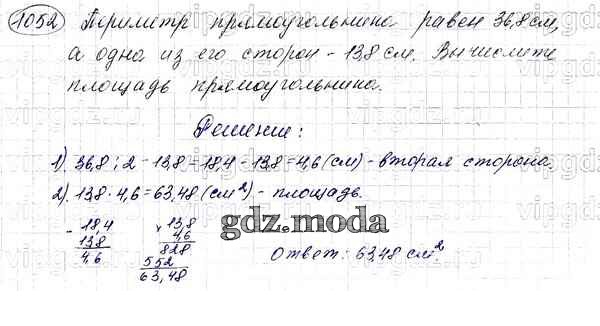 1052 Периметр прямоугольника равен 36,8 см,
а одна из его сторон - 13,8 см. Вычислите
площадь прямоугольника.
Решение:
1) 36,8 : 2 - 13,8 = 18,4 - 13,8 = 4,6 (см) - вторая сторона.
2) 13,8 · 4,6 = 63,48 (см²) - площадь.
- 18,4 × 13,8
13,8 4,6
4,6 828
552
63,48
gdz.moda
Ответ: 63,48 см².